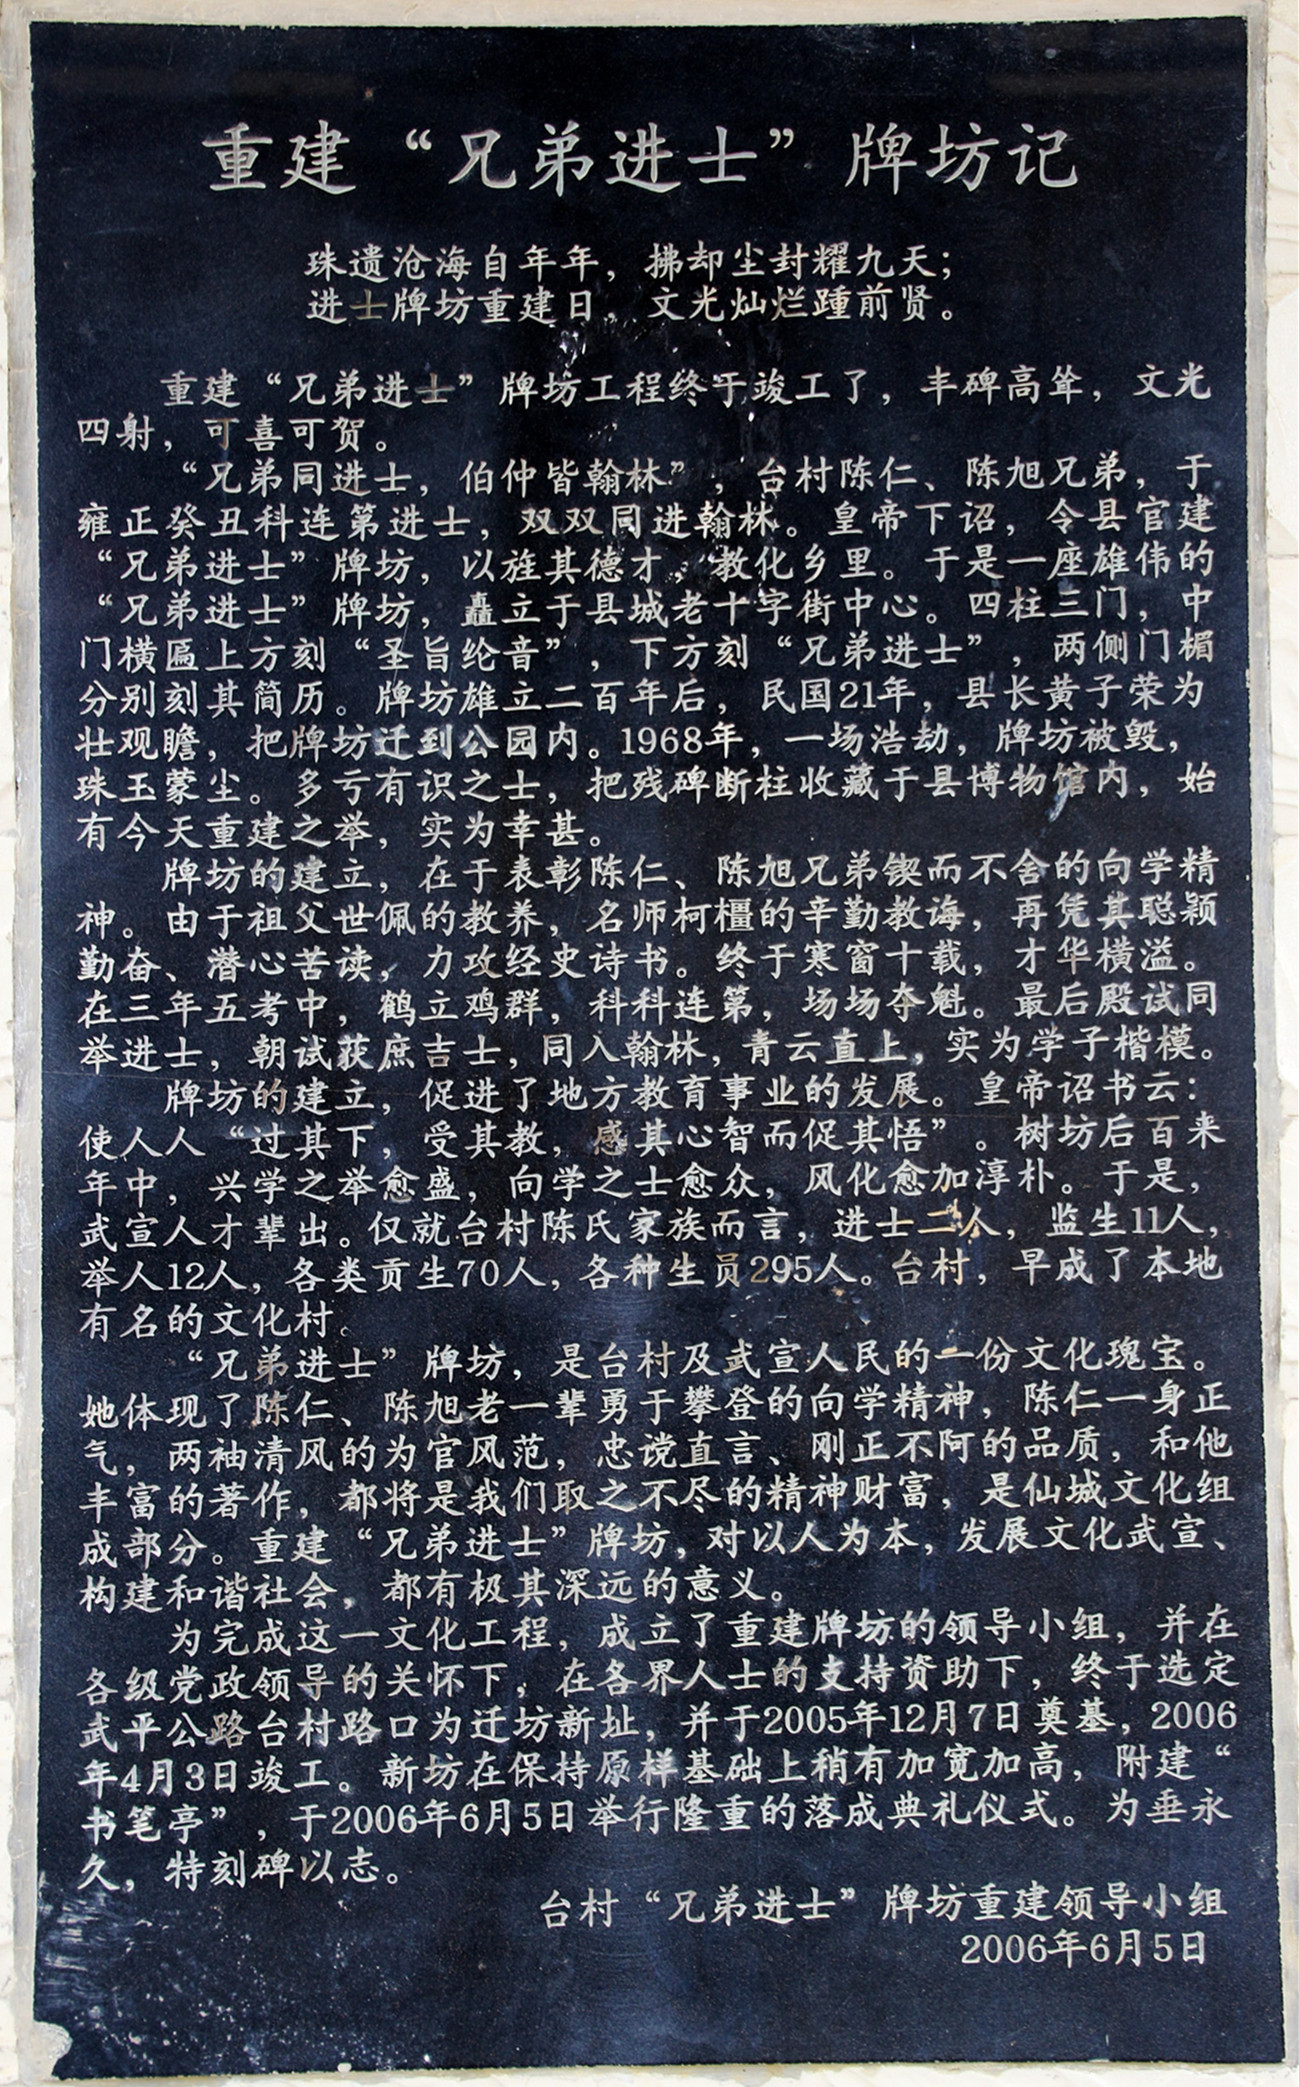 重建“兄弟进士”牌坊记
珠遗沧海自年年，拂却尘封耀九天；
进士牌坊重建日，文光灿烂踵前贤。
重建“兄弟进士”牌坊工程终于竣工了，丰碑高耸，文光
四射，可喜可贺。
“兄弟同进士，伯仲皆翰林”，台村陈仁、陈旭兄弟，于
雍正癸丑科连第进士，双双同进翰林。皇帝下诏，令县官建
“兄弟进士”牌坊，以旌其德才，教化乡里。于是一座雄伟的
“兄弟进士”牌坊，矗立于县城老十字街中心。四柱三门，中
门横匾上方刻“圣旨纶音”，下方刻“兄弟进士”，两侧门楣
分别刻其简历。牌坊雄立二百年后，民国21年，县长黄子荣为
壮观瞻，把牌坊迁到公园内。1968年，一场浩劫，牌坊被毁，
珠玉蒙尘。多亏有识之士，把残碑断柱收藏于县博物馆内，始
有今天重建之举，实为幸甚。
牌坊的建立，在于表彰陈仁、陈旭兄弟锲而不舍的向学精
神。由于祖父世佩的教养，名师柯橿的辛勤教诲，再凭其聪颖
勤奋、潜心苦读，力攻经史诗书。终于寒窗十载，才华横溢。
在三年五考中，鹤立鸡群，科科连第，场场夺魁。最后殿试同
举进士，朝试获庶吉士，同入翰林，青云直上，实为学子楷模。
牌坊的建立，促进了地方教育事业的发展。皇帝诏书云：
使人人“过其下，受其教，感其心智而促其悟”。树坊后百来
年中，兴学之举愈盛，向学之士愈众，风化愈加淳朴。于是，
武宣人才辈出。仅就台村陈氏家族而言，进士二人，监生11人，
举人12人，各类贡生70人，各种生员295人。台村，早成了本地
有名的文化村。
“兄弟进士”牌坊，是台村及武宣人民的一份文化瑰宝。
她体现了陈仁、陈旭老一辈勇于攀登的向学精神，陈仁一身正
气，两袖清风的为官风范，忠谠直言、刚正不阿的品质，和他
丰富的著作，都将是我们取之不尽的精神财富，是仙城文化组
成部分。重建“兄弟进士”牌坊，对以人为本，发展文化武宣、
构建和谐社会，都有极其深远的意义。
为完成这一文化工程，成立了重建牌坊的领导小组，并在
各级党政领导的关怀下，在各界人士的支持资助下，终于选定
武平公路台村路口为迁坊新址，并于2005年12月7日奠基，2006
年4月3日竣工。新坊在保持原样基础上稍有加宽加高，附建“
书笔亭”，于2006年6月5日举行隆重的落成典礼仪式。为垂永
久，特刻碑以志。
台村“兄弟进士”牌坊重建领导小组
2006年6月5日